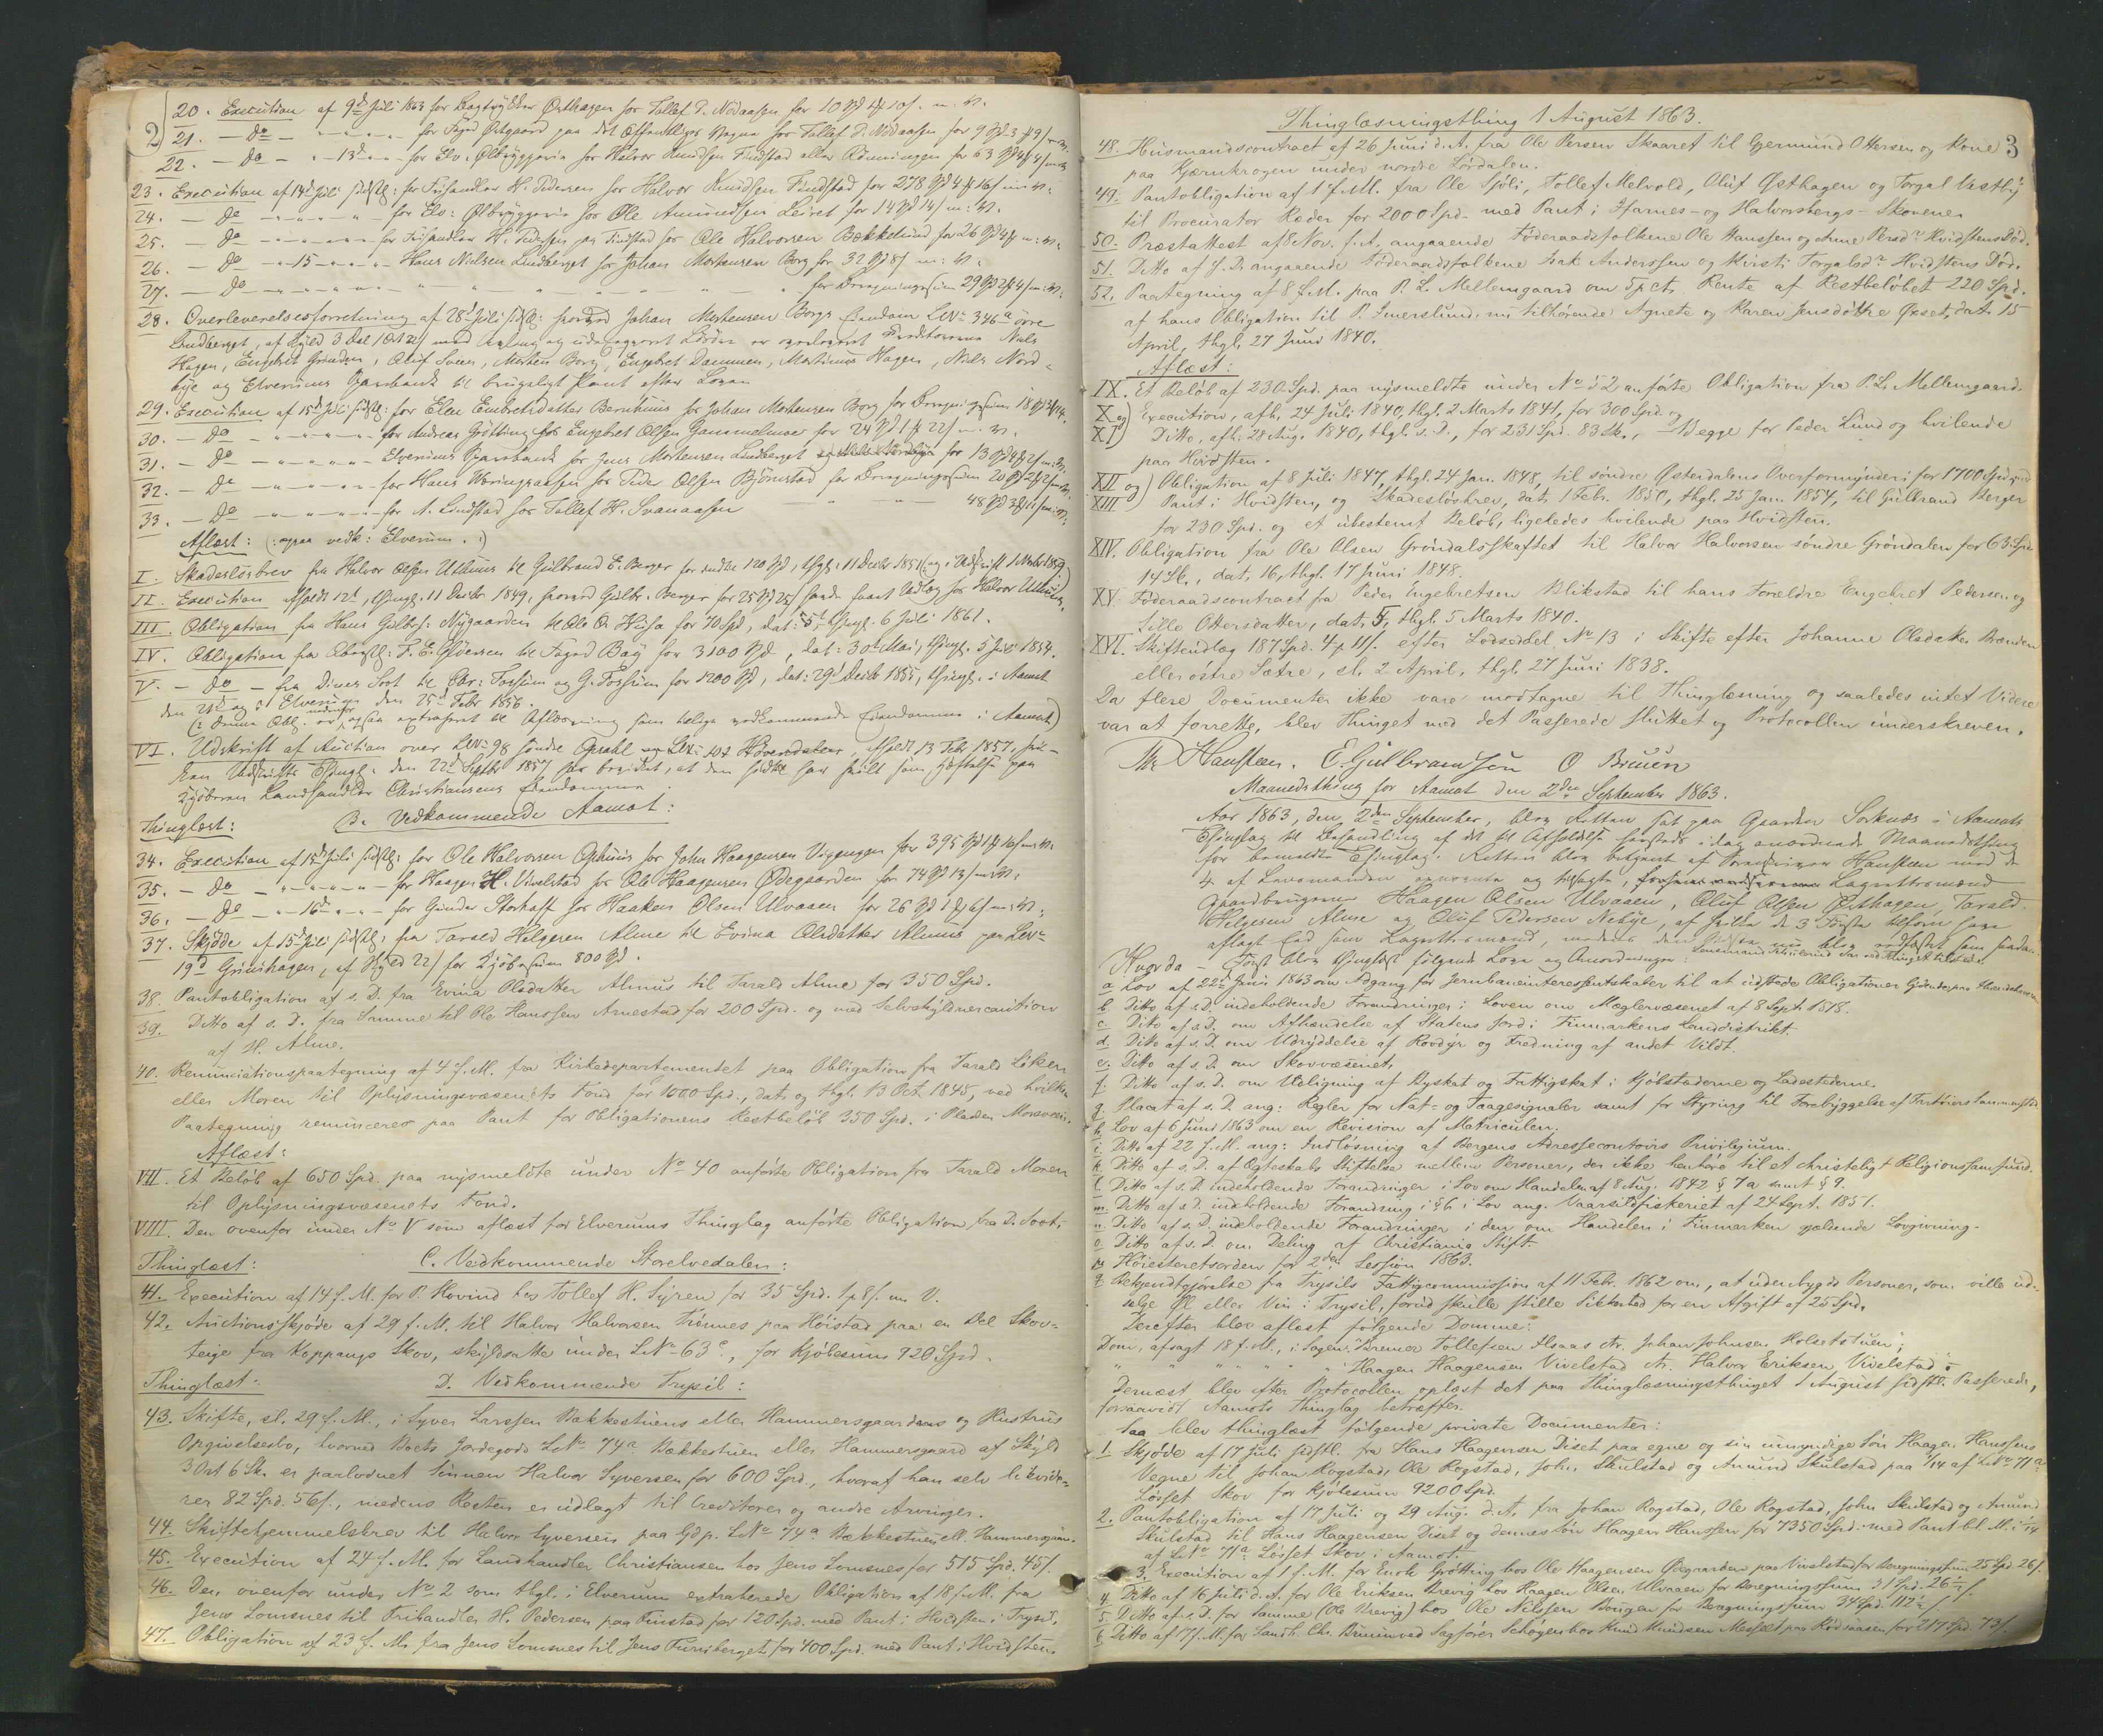 2
20. Execution af 9d Juli 1863 for Sagfører Østhagen hos Tollef P. Nødaasen for 10 Spd
21. - Do - for Foged Østgaard paa det Offentliges Vegne hos Tollef P. Nødaasen for 9 Spd 3
22. - Do - 13d - for Elv: Ølbryggerie hos Halvor Knudsen Findstad eller Rønningen for 63 Spd
23. Execution af 14d Juli sidstl: for Frihandler H. Pedersen hos Halvor Knudsen Findstad for 278 Spd 4
24. - Do - for Elv: Ølbryggerie hos Ole Amundsen Leiret for 14 Spd 14
25. - Do - for Frihandler H. Pedersen paa Findstad hos Ole Halvorsen Bækkelund for 26 Spd
26. - Do - 15 - Hans Nielsen Lindberget hos Johan Mortensen Borg for 32 Spd 8
27. - Do - for Beregningssum 29 Spd
28. Overleverelsesforretning af 28d Juli sidstl: hvorved Johan Mortensen Borgs Eiendom LNr 346a øvre
Lindberget, af Skyld 3 Dal. er overleveret Creditorerne Niels
Hagen, Engebret Grinden, Oluf Soen, Morten Borg, Engebret Dammen, Martinus Hagen, Niels Nord-
bye og Elverums Sparebank til brugeligt Pant efter Loven
29. Execution af 15d Juli sidstl: for Elen Embretsdatter Bernhuus hos Johan Mortensen Borg for Beregningssum 18 Spd
30. - Do - for Andreas Grøtting hos Engebret Olsen Gammelmoe for 24 Spd 1 22
31. - Do - Elverums Sparebank hos Jens Mortensen Lindberget for 13 Spd
32. - Do - for Hans hos Peder Olsen Bjørnstad for Beregningssum 20 Spd
33. - Do - for A. Lindstad hos Tollef H. Svenaasen 48 Spd
Aflæst: (: ogsaa vedk: Elverum. :)
I. Skadesløsbrev fra Halvor Olsen Uthuus til Gulbrand E. Berger for indtil 120 Spd, thgl: 11 Decbr 1851
II. Execution afholdt 12d, thingl. 11 Decbr. 1849, hvorved Gulbr. Berger for 25 Spd 25 havde faaet Udlæg hos Halvor Uthuus.
III. Obligation fra Hans Gulbrs: Nygaarden til Ole O. Husa for 70 Spd, dat: 5t thingl. 6 Juli 1861.
IV. Obligation fra Obristl: F. C. Gløersen til Foged Bay for 3100 Spd, dat: 30te Mai, thingl. 5 Juli 1854.
V. - Do - fra Dines Soot til Chr: Fossum og G. Fossum for 1200 Spd, dat: 29d Decbr 1855, thingl. i Aamot
den 21d og i Elverum den 25d Febr 1856.
(: denne Obl. er ogsaa extraheret til Aflæsning som tillige vedkommende Eiendomme i Aamot)
VI. Udskrift af Auction over LNr 98 søndre Grahl afholdt 13 Febr. 1857, hvil-
ken Udskrift thingl. den 22d Septbr 1857 har bevidnet, at den sidste har hvilt som Heftelse paa
Kjøberen Landhandler Christiansens Eiendomme
Thinglæst: B. Vedkommende Aamot:
34. Execution af 15d Juli sidstl: for Ole Halvorsen Ophuus hos John Haagensen Vigengen for 395 Spd
35. - Do - for Haagen H. Vivelstad hos Ole Haagensen Ødegaarden for 74 Spd 13
36. - Do - 16d - for Gunder Storhoff hos Haaken Olsen Ulvaaen for 26 Spd
37. Skjøde af 15d Juli sidstl: fra Tarald Helgesen Alme til Evina Olsdatter Almus paa LNr
19d Grimshagen, af Skyld 22 for Kjøbesum 800 Spd.
38. Pantobligation af s. D. fra Evina Olsdatter Almus til Tarald Alme for 350 Spd.
39. Ditto af s. D. fra Samme til Ole Hanssen Arnestad for 200 Spd. og med Selvskyldnercaution
af H. Alme.
40. Renunciationspaategning af 4 f. M. fra Kirkedepartementet paa Obligation fra Tarald Løken
eller Moren til Oplysningsvæsenets Fond for 1000 Spd., dat. og thgl. 13 Oct 1845, ved hvilken
Paategning renunceres paa Pant for Obligationens Restbeløb 350 Spd. i Pladsen Moreveien.
Aflæst:
VII. Et Beløb af 650 Spd. paa nysmeldte under No 40 anførte Obligation fra Tarald Moren
til Oplysningsvæsenets Fond.
VIII. Den ovenfor under No V som aflæst for Elverums Thinglag anførte Obligation fra D. Soot.
Thinglæst: C. Vedkommende Storelvedalen:
41. Execution af 14 f. M. for P. Hovind hos Tollef H. Syren for 35 Spd. 1 p 8 s. m. V.
42. Auctionsskjøde af 29 f. M. til Halvor Halvorsen Tiønnes paa Høistad paa en Del Skov-
teige fra Koppangs Skov, skyldsatte under LNo 63c, for Kjøbesum 920 Spd.
Thinglæst: D. Vedkommende Trysil:
43. Skifte, sl. 29 f. M., i Syver Larssen Bakkestuens eller Hammersgaardens og Hustrus
Opgivelsesbo, hvorved Boets Jordegods LNo 74a Bækkestuen eller Hammersgaard af Skyld
3 Ort 6 Sk. er paalodnet Sønnen Halvor Syversen for 600 Spd., hvoraf han selv likvide-
rer 82 Spd. 56 s., medens Resten er udlagt til Creditorer og andre Arvinger.
44. Skiftehjemmelsbrev til Halvor Syversen paa Gdp. LNo 74a Bækkestuen ell. Hammersgaard.
45. Execution af 24 f. M. for Landhandler Christiansen hos Jens Lomsnes for 515 Spd. 45 s.
46. Den ovenfor under No 2 som thgl. i Elverum extraherede Obligation af 18 f. M. fra
Jens Lomsnes til Frihandler H. Pedersen paa Finstad for 120 Spd. med Pant i Hvidsten i Trysil.
47. Obligation af 23 f. M. fra Jens Lomsnes til Jens Furuberget for 400 Spd. med Pant i Hvidsten.
Thinglæsningsthing 1 August 1863.
3
48. Husmandscontract af 26 Juni d. A. fra Ole Persen Skaaret til Gjermund Ottersen og Kone
paa Kjærnkrogen under nordre Sørdalen.
49. Pantobligation af 1 f. M. fra Ole Sjøli, Tollef Melvold, Oluf Østhagen og Torgal Vestby
til Procurator Ræder for 2000 Spd. med Pant i Harnes- og Halvorsbergs-Skovene.
50. Præstattest af 8 Nov. f. A. angaaende Føderaadsfolkene Ole Hanssen og Anne Persdr Hvidstens Død.
51. Ditto af s. D. angaaende Føderaadsfolkene Isak Anderssen og Kirsti Torgalsdr Hvidstens Død.
52. Paategning af 8 f. M. paa P. L. Mellemgaard om 5 p ct. Rente af Restbeløbet 220 Spd.
af hans Obligation til P. Smerslund, nu tilhørende Agnete og Karen Jensdøttre Øxset, dat. 15
April, thgl. 27 Juni 1840.
Aflæst:
IX. Et Beløb af 230 Spd. paa nysmeldte under No 52 anførte Obligation fra P. L. Mellemgaard.
X og) Execution, afh. 24 Juli 1840, thgl. 2 Marts 1841, for 300 Spd. og
XI) Ditto, afh. 28 Aug. 1840, thgl. s. D., for 231 Spd. 83 Sk., - Begge for Peder Lund og hvilende
paa Hvidsten.
XII og) Obligation af 8 Juli 1847, thgl. 24 Jan. 1848, til søndre Østerdalens Overformynderi for 1700 Spd. med
XIII) Pant i Hvidsten, og Skadesløsbrev, dat. 1 Febr. 1850, thgl. 25 Jan. 1854, til Gulbrand Berger
for 230 Spd. og et ubestemt Beløb, ligeledes hvilende paa Hvidsten.
XIV. Obligation fra Ole Olsen Grøndalsskaftet til Halvor Halvorsen søndre Grøndalen for 63 Spd
14 Sk., dat. 16, thgl. 17 Juni 1848.
XV. Føderaadscontract fra Peder Engebretsen Blikstad til hans Forældre Engebret Pedersen og
Lille Ottersdatter, dat. 5, thgl. 5 Marts 1840.
XVI. Skifteudlæg 187 Spd. 4 p 11 s. efter Lodseddel No 13 i Skifte efter Johanne Olsdatter Brænden
eller østre Sætre, sl. 2 April, thgl. 27 Juni 1838.
Da flere Documenter ikke vare modtagne til Thinglæsning og saaledes intet Videre
var at forrette, blev Thinget med det Passerede sluttet og Protocollen underskreven.
Hansteen. E. Gulbransen O Bruun
Maanedsthing for Aamot den 2den September 1863.
Aar 1863, den 2den September, blev Retten sat paa Gaarden Sorknæs i Aamots
Thinglag til Behandling af det til Afholdelse sammesteds idag anordnede Maanedsthing
for bemeldte Thinglag. Retten blev betjent af Sorenskriver Hansteen med de
4 af Lensmanden opnævnte og tilsagte, Lagrettesmænd
Gaardbrugerne Haagen Olsen Ulvaaen, Oluf Olsen Østhagen, Tarald
Helgesen Alme og Oluf Pedersen Nebye, af hvilke de 3 Første tilforn have
aflagt Ed som Lagrettesmænd, medens den sidste nu blev edfæstet som saadan.
Lensmand var ved Thinget tilstede.
Hvorda - Først blev thinglæst følgende Love og Anordninger:
a. Lov af 22d Juni 1863 om Adgang for Jernbaneinteressentskaber til at udstede Obligationer lydende paa Ihændehaveren
b. Ditto af s. D. indeholdende Forandringer i Loven om Mæglervæsenet af 8 Sept. 1818.
c. Ditto af s. D. om Afhændelse af Statens Jord i Finmarkens Landdistrikt.
d. Ditto af s. D. om Udryddelse af Rovdyr og Fredning af andet Vildt.
e. Ditto af s. D. om Skovvæsenet.
f. Ditto af s. D. om Udligning af Byskat og Fattigskat i Kjøbstæderne og Ladestederne.
g. Placat af s. D. ang: Regler for Nat- og Taagesignaler samt for Styring til Forebyggelse af Fartøiers Sammenstød
h. Lov af 6 Juni 1863 om en Revision af Matriculen.
i. Ditto af 22 f. M. ang: Indløsning af Bergens Adressecontoirs Privilegium.
k. Ditto af s. D. af Ægteskabs Stiftelse mellem Personer, der ikke henhøre til et christeligt Religionssamfund.
l. Ditto af s. D. indeholdende Forandringer i Lov om Handelen af 8 Aug. 1842 § 7 a samt § 9.
m. Ditto af s. D. indeholdende Forandring i § 6 i Lov ang. Vaarsildfiskeriet af 24 Sept. 1851.
n. Ditto af s. D. indeholdende Forandringer i den om Handelen i Finmarken gjældende Lovgivning.
o. Ditto af s. D. om Deling af Christiania Stift.
p. Høiesteretsorden for 2den Session 1863.
q. Bekjendtgjørelse fra Trysils Fattigcommission af 11 Febr. 1862 om, at udenbygds Personer, som ville ud-
sælge Øl eller Vin i Trysil, forud skulle stille Sikkerhed for en Afgift af 25 Spd.
Derefter blev aflæst følgende Domme:
Dom, afsagt 18 f. M., i Sagen: "Bremer Tollefsen Ilsaas ctr. Johan Johnsen Holsetstuen";
" " " " " " "Haagen Haagensen Vivelstad ctr. Halvor Eriksen Vivelstad".
Dernæst blev efter Protocollen oplæst det paa Thinglæsningsthinget 1 August sidstl. Passerede,
forsaavidt Aamots Thinglag betræffer.
Saa blev thinglæst følgende private Documenter:
1. Skjøde af 17 Juli sidstl. fra Hans Haagensen Diset paa egne og sin umyndige Søn Haagen Hanssens
Vegne til Johan Rogstad, Ole Rogstad, John Skulstad og Amund Skulstad paa 1/14 af LNo 71a
Løsset Skov for Kjøbesum 9200 Spd.
2. Pantobligation af 17 Juli og 29 Aug. d. A. fra Johan Rogstad, Ole Rogstad, John Skulstad og Amund
Skulstad til Hans Haagensen Diset og dennes Søn Haagen Hanssen for 7350 Spd. med Pant bl. A. i 1/14
af LNo 71a Løsset Skov i Aamot.
3. Execution af 1 f. M. for Enok Grøtting hos Ole Haagensen Øegaarden paa Vivelstad for Beregningssum 25 Spd. 26 s.
4. Ditto af 16 Juli d. A. for Ole Eriksen Brevig hos Haagen Olsen Ulvaaen for Beregningssum 31 Spd. 26
5. Ditto af s. D. for Samme (Ole Brevig) hos Ole Nilssen Bougen for Beregningssum 34 Spd. 112
6. Ditto af 17 f. M. for Landh. Chr. Bruun ved Sagfører Schøyen hos Knud Knudsen Messelt paa Rødsaasen for 217 Spd. 73 s.